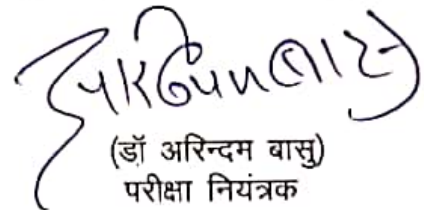 (डॉ अरिन्दम बासु)
परीक्षा नियंत्रक